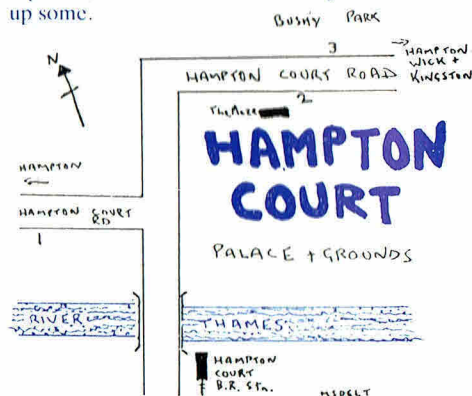 up some.
BUSHY PARK
3
HAMPTON
WICK +
KINGSTON
N
HAMPTON COURT ROAD
2
The Maze
HAMPTON
COURT
HAMPTON
HAMPTON COURT
RD
1
PALACE + GROUNDS
RIVER THAMES
HAMPTON
COURT
B.R. Stn.